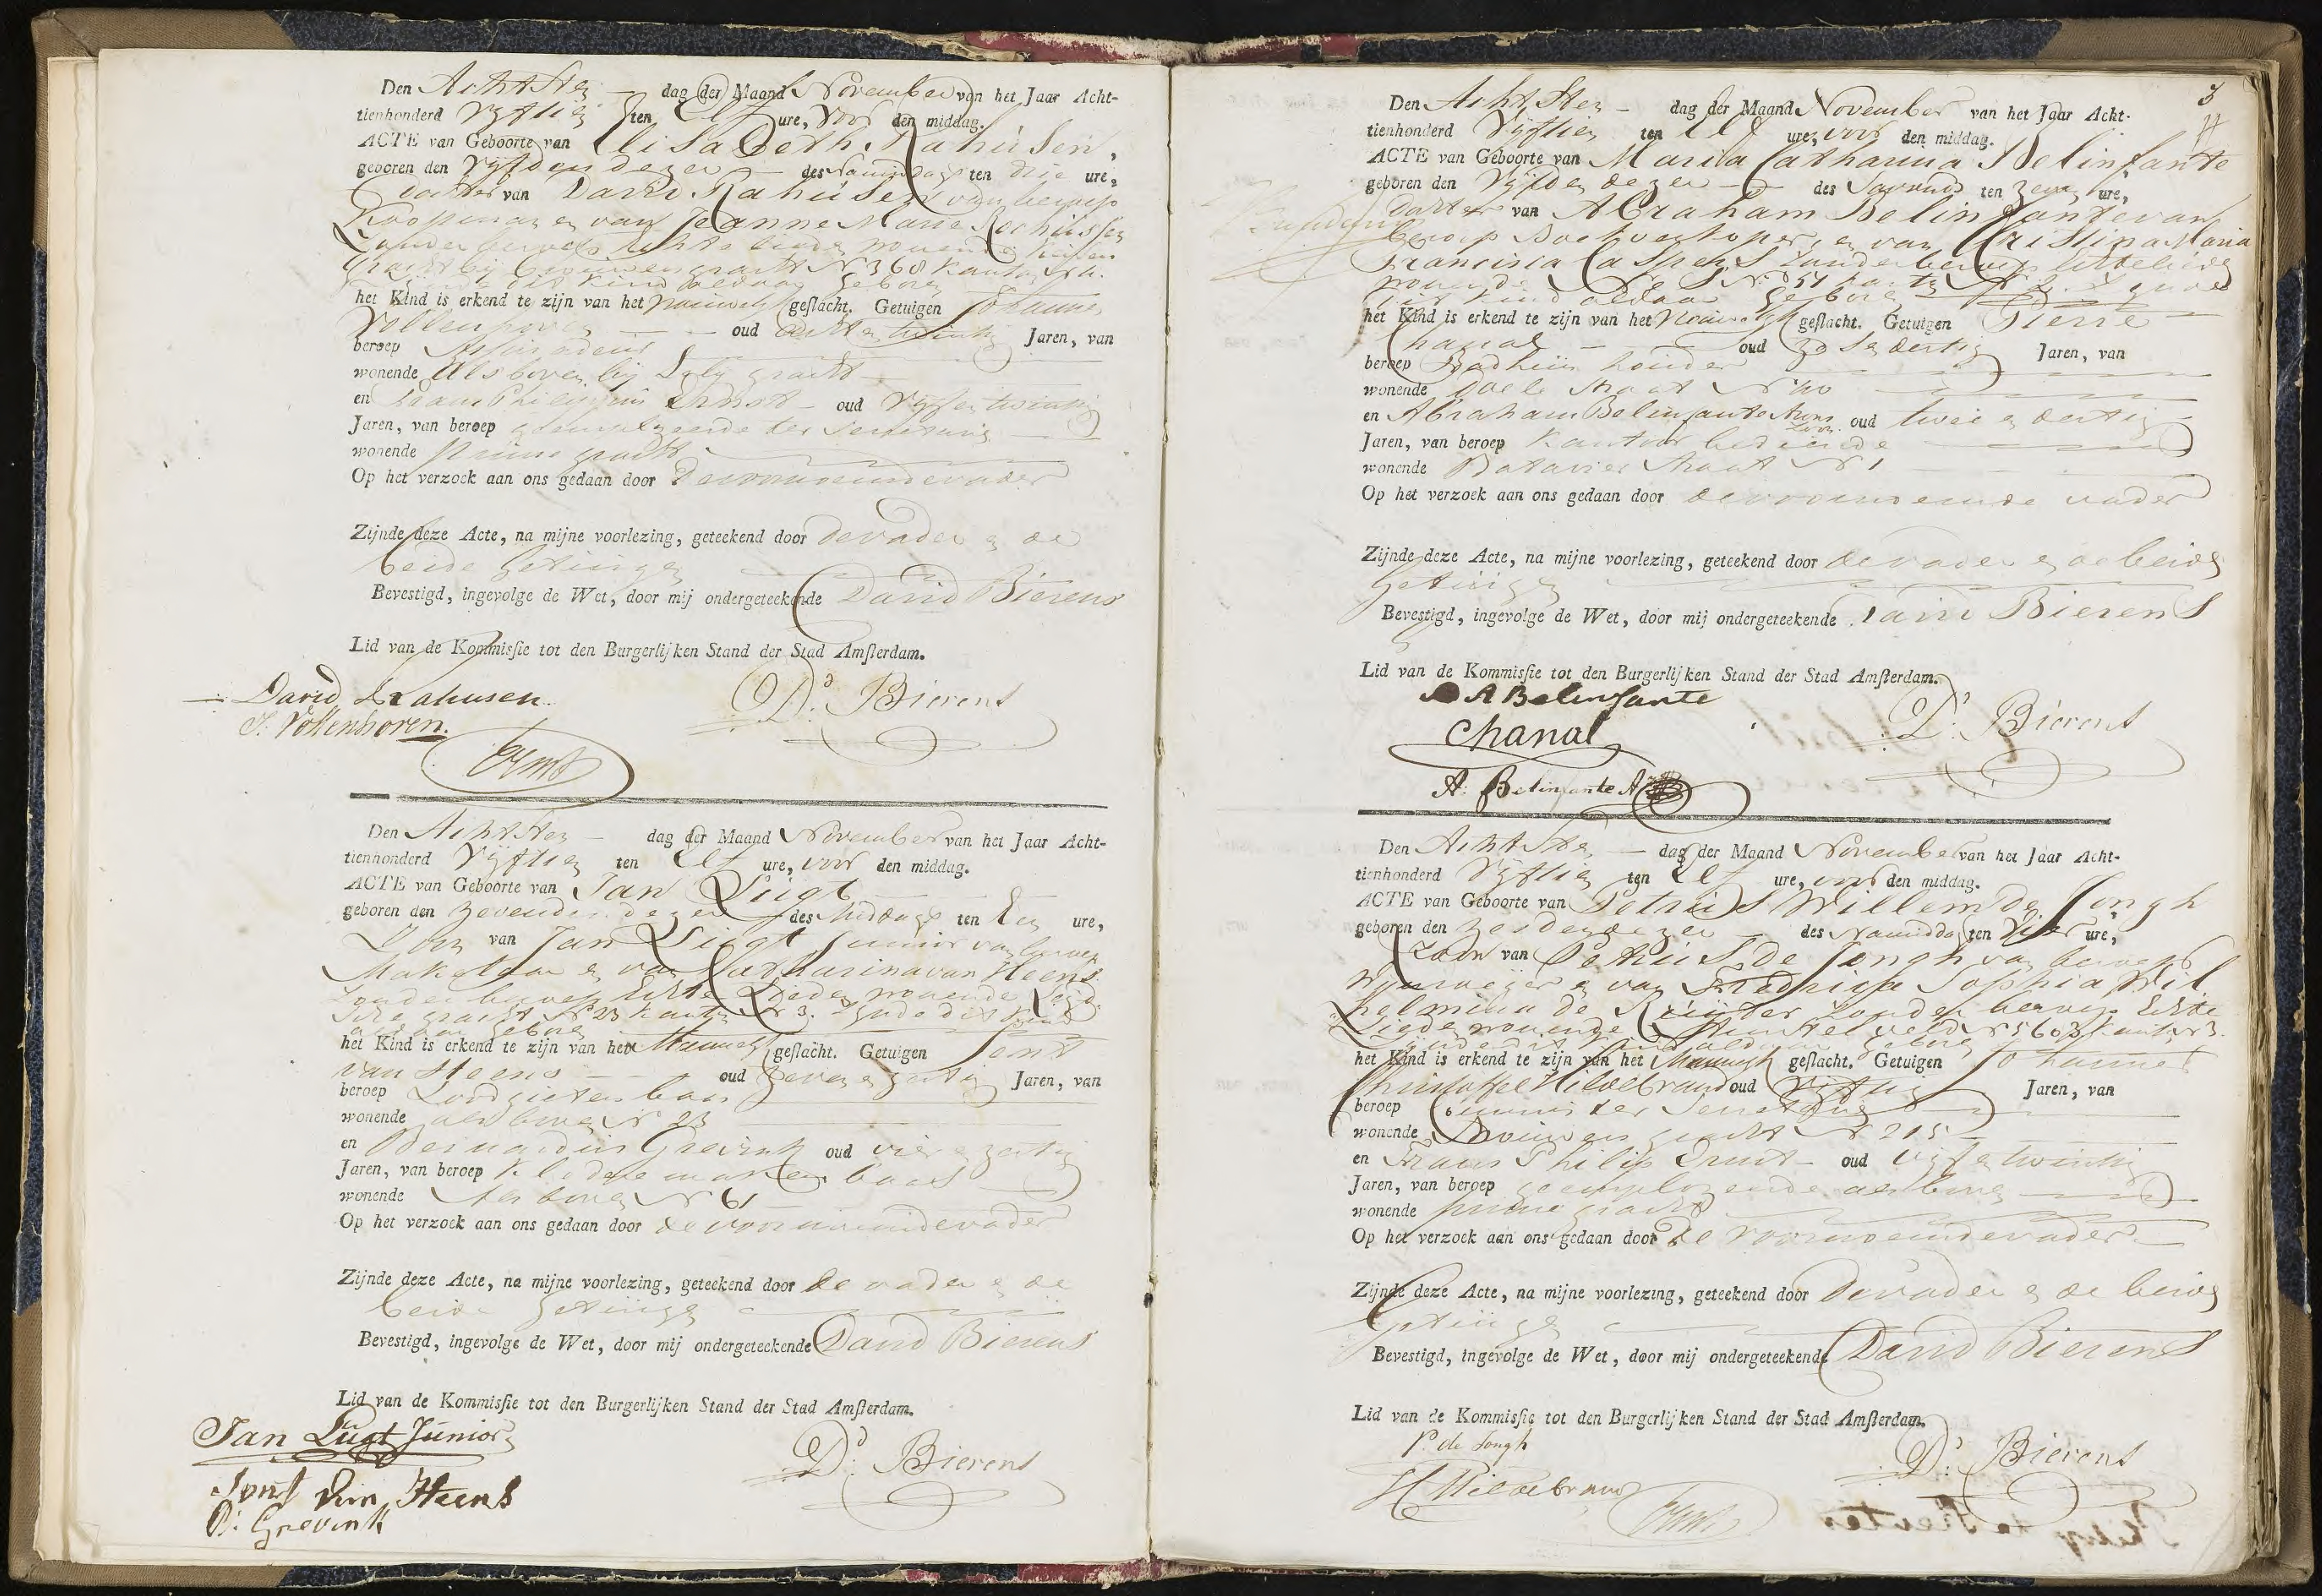 Den Achtsten dag der Maand November van het Jaar Acht-
tienhonderd Vyftien ten Elf ure, voor den middag.
ACTE van Geboorte van Elisabeth Rahusen,
geboren den Vyfden dezer des Namiddags ten drie ure,
dochter van David Rahusen van beroep
Koopman en van Jeanne Marie Rochussen
zonder beroep echte lieden wonende
gracht bij No 368 Kanton
dit kind aldaar geboren
het Kind is erkend te zijn van het vrouwelijk geslacht. Getuigen Johannes
Vollenhoven oud acht en twintig Jaren, van
beroep
wonende als boven bij gracht
en Frans Philippus Ernst oud Vyf en twintig
Jaren, van beroep geemployeerde ter Secretarie
wonende Prince gracht
Op het verzoek aan ons gedaan door de voornoemde vader
Zijnde deze Acte, na mijne voorlezing, geteekend door de vader en de
beide getuigen
Bevestigd, ingevolge de Wet, door mij ondergeteekende David Bierens
Lid van de Kommissie tot den Burgerlijken Stand der Stad Amsterdam.
David Rahusen
J. Vollenhoven.
Dd. Bierens
Ernst
Den Achtsten dag der Maand November van het Jaar Acht-
tienhonderd Vyftien ten Elf ure, voor den middag.
ACTE van Geboorte van Jan Lugt
geboren den Zevenden dezer des Middags ten Een ure,
Zoon van Jan Lugt Junior van beroep
Makelaar en van Catharina van Steens
zonder beroep Echte Lieden wonende
gracht No 23 Kanton No 3. Zynde dit Kind
aldaar geboren
het Kind is erkend te zijn van het Mannelyk geslacht. Getuigen Jonst
van Steens oud zeven en zestig Jaren, van
beroep Loodgieters baas
wonende als boven No 23
en Bernardus Grevink oud vier en zestig
Jaren, van beroep Kleedermakers baas
wonende als boven No 61
Op het verzoek aan ons gedaan door de voornoemde vader
Zijnde deze Acte, na mijne voorlezing, geteekend door de vader en de
beide getuigen
Bevestigd, ingevolge de Wet, door mij ondergeteekende David Bierens
Lid van de Kommissie tot den Burgerlijken Stand der Stad Amsterdam.
Jan Lugt Junior
Jonst van Steens
B: Grevink
Dd. Bierens
3
Den Achtsten dag der Maand November van het Jaar Acht-
tienhonderd Vyftien ten Elf ure, voor den middag.
ACTE van Geboorte van Maria Catharina Belinfante
geboren den Vyfden dezer des Savonds ten Zeven ure,
dochter van Abraham Belinfante van
beroep Boekverkoper, en van Christina Maria
Francisca Caspers zonder beroep Echte lieden
wonende No 51 Kanton No 2. Zynde
dit Kind aldaar geboren
het Kind is erkend te zijn van het Vrouwelyk geslacht. Getuigen Pierre
Chanal oud Zes en dertig Jaren, van
beroep Badhuis houder
wonende Doele Straat No 40
en Abraham Belinfante Arons Zoon oud twee en dertig
Jaren, van beroep Kantoor bediende
wonende Batavier Straat No 1
Op het verzoek aan ons gedaan door de voornoemde vader
Zijnde deze Acte, na mijne voorlezing, geteekend door de vader en de beide
getuigen
Bevestigd, ingevolge de Wet, door mij ondergeteekende David Bierens
Lid van de Kommissie tot den Burgerlijken Stand der Stad Amsterdam.
A Belinfante
Chanal
A: Belinfante
Dd. Bierens
Den Achtsten dag der Maand November van het Jaar Acht-
tienhonderd Vyftien ten Elf ure, voor den middag.
ACTE van Geboorte van Petrus Willem de Jongh
geboren den Zesden dezer des Namiddag ten Vier ure,
Zoon van Petrus de Jongh van beroep
en van Fredrica Sophia Wil
helmina de Ruyter zonder beroep Echte
Lieden wonende Amstelveld No 5603 Kanton 3.
Zynde dit Kind aldaar geboren
het Kind is erkend te zijn van het Mannelyk geslacht. Getuigen Johannes
Christoffel Hildebrand oud Vyftig Jaren, van
beroep Commis ter Secretarie
wonende Brouwers gracht No 215
en Frans Philip Ernst oud Vyf en twintig
Jaren, van beroep geemployeerde als boven
wonende prince gracht
Op het verzoek aan ons gedaan door de voornoemde vader
Zijnde deze Acte, na mijne voorlezing, geteekend door de vader en de beide
getuigen
Bevestigd, ingevolge de Wet, door mij ondergeteekende David Bierens
Lid van de Kommissie tot den Burgerlijken Stand der Stad Amsterdam.
P. de Jongh
Hildebrand
Ernst
Dd. Bierens